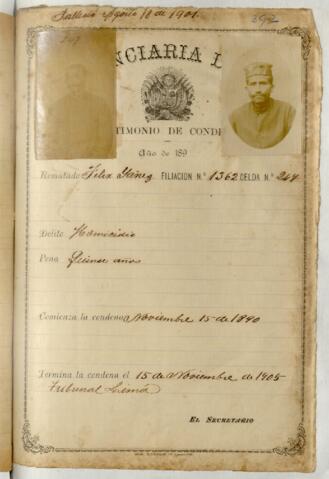 Falleció Agosto 18 de 1901.
392
NCIARIA D
TIMONIO DE CONDE
Año de 189
Rematado Felix Ibañez FILIACIÓN N.º 1362 CELDA N.º 264
Delito Homicidio
Pena Quince años
Comienza la condena Noviembre 15 de 1890
Termina la condena el 15 de Noviembre de 1905
Tribunal Lima
EL SECRETARIO